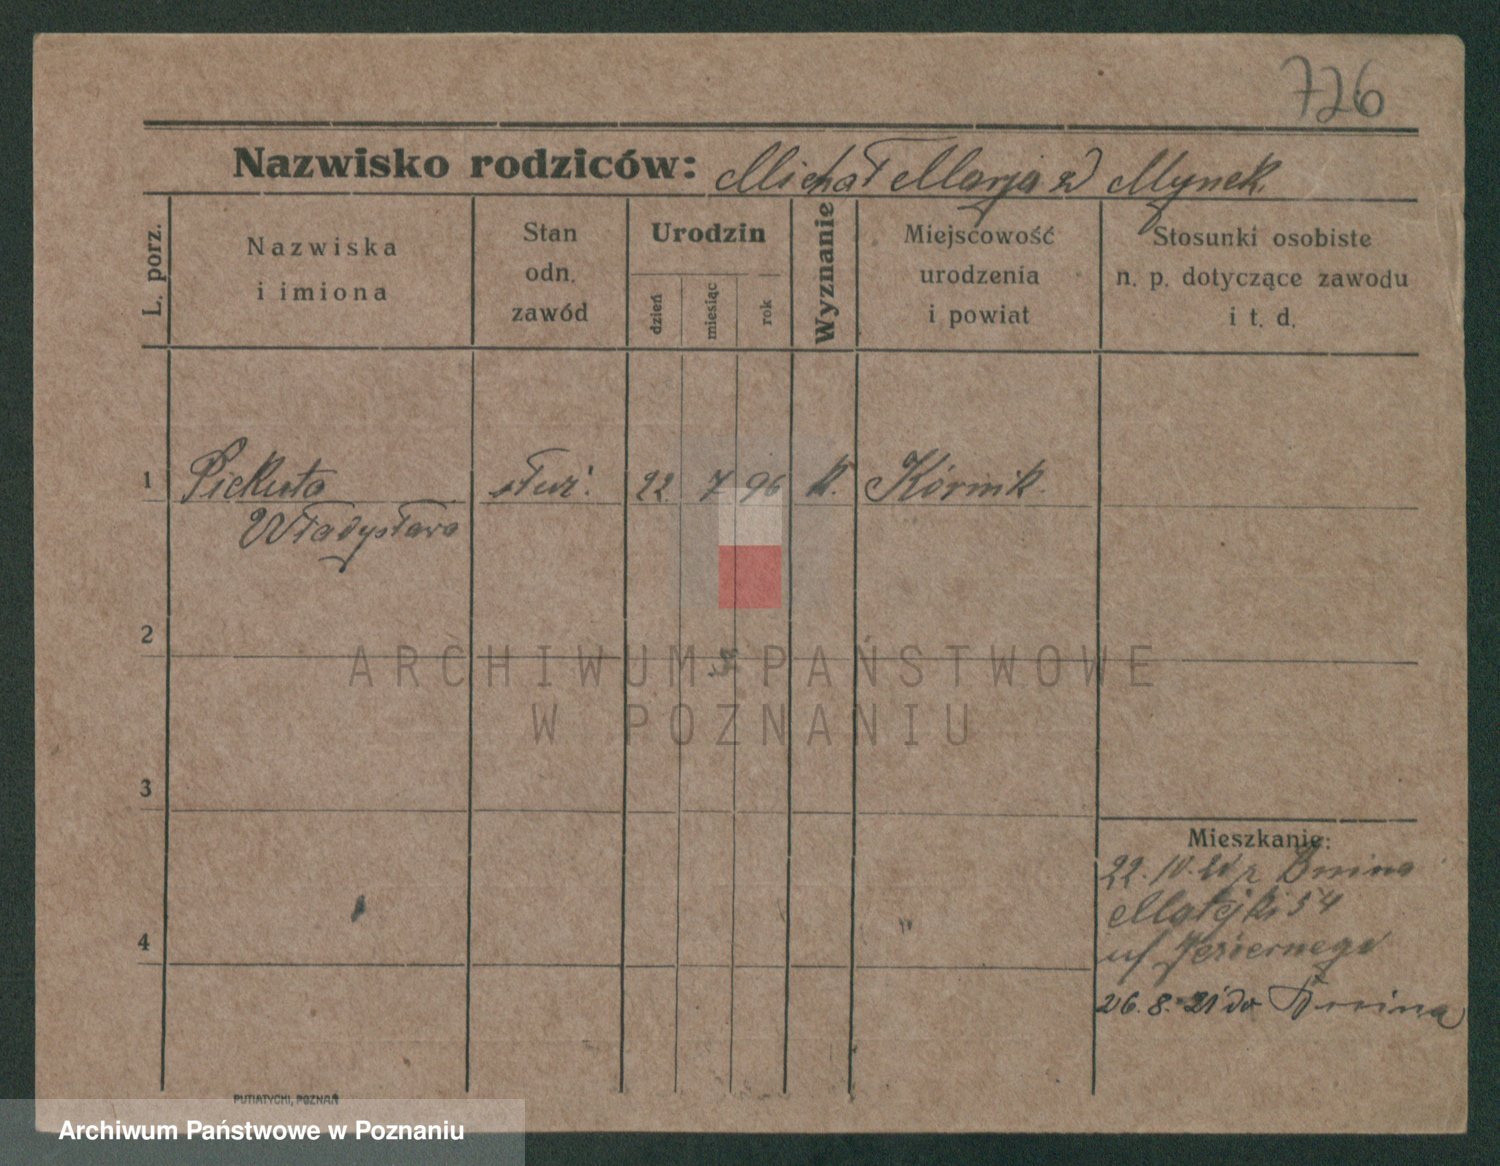 726
Nazwisko rodziców: Michał Marja z Mynek
L. porz.
Nazwiska
i imiona
Stan
odn.
zawód
Urodzin
dzień
miesiąc
rok
Wyznanie
Miejscowość
urodzenia
i powiat
Stosunki osobiste
n. p. dotyczące zawodu
i t. d.
1 Piekuta służ. 22. 7 96 k. Kórnik
Władysława
2
3
4
Mieszkanie:
22. IV. 21 z
Matejki 54
u/ Jeziernego
26. 8. 21 do
PUTIATYCKI, POZNAŃ
ARCHIWUM PAŃSTWOWE
W POZNANIU
Archiwum Państwowe w Poznaniu